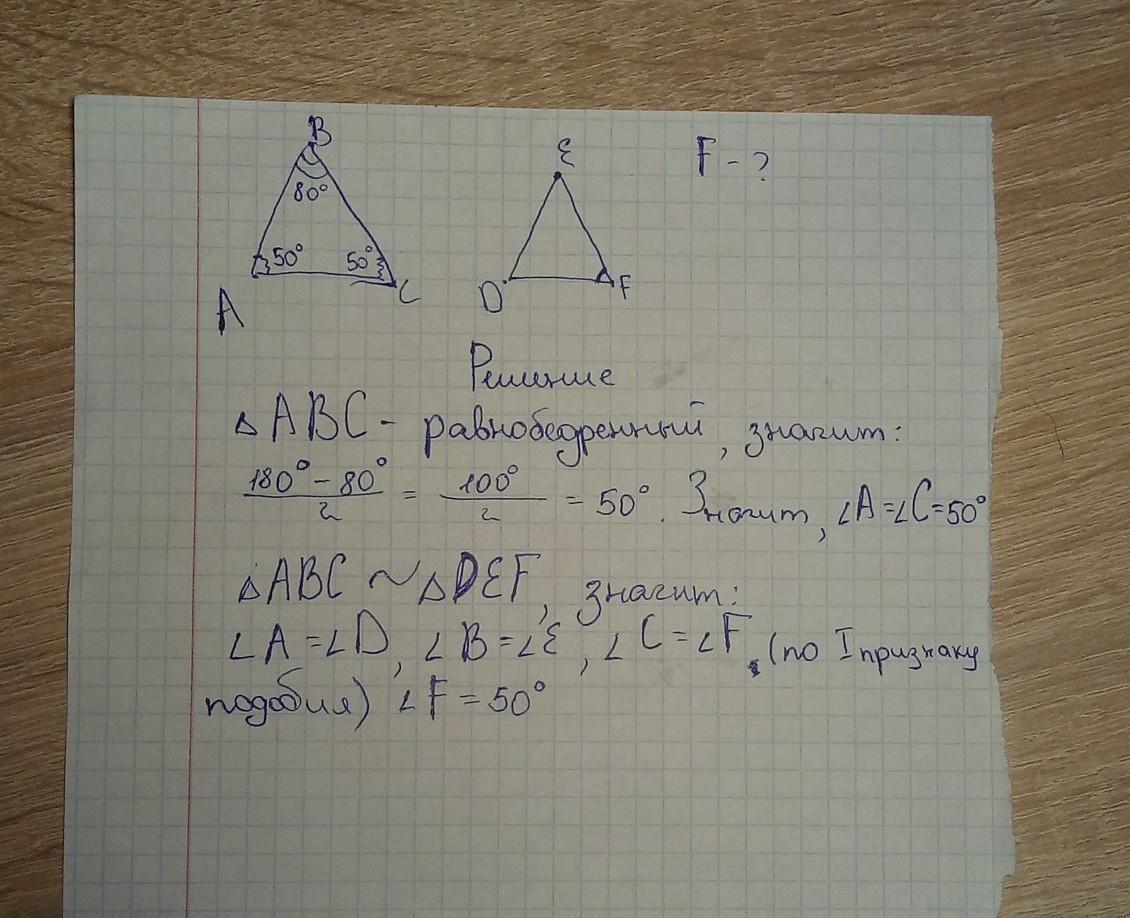 B
80°
50° 50°
A C
E
D F
F - ?
Решение
△ABC - равнобедренный, значит:
180° - 80° / 2 = 100° / 2 = 50°. Значит, ∠A=∠C=50°
△ABC ~ △DEF, значит:
∠A = ∠D, ∠B = ∠E, ∠C = ∠F. (по I признаку
подобия) ∠F = 50°